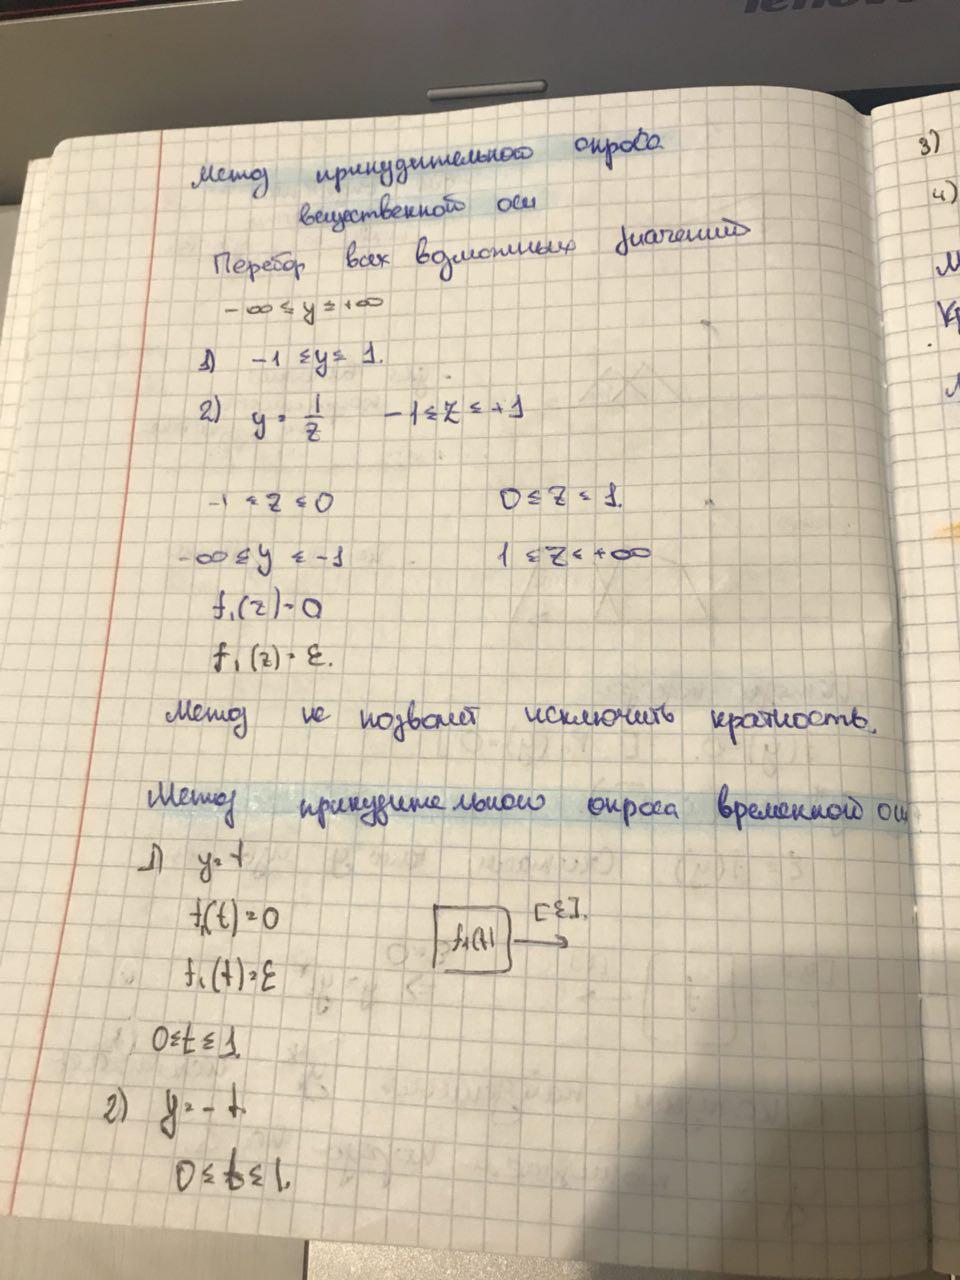 lenovo
Метод принудительного опроса
вещественной оси
Перебор всех возможных значений
-∞ ≤ y ≤ +∞
1) -1 ≤ y ≤ 1.
2) y = 1/z   -1 ≤ z ≤ +1
-1 ≤ z ≤ 0   0 ≤ z ≤ 1.
-∞ ≤ y ≤ -1   1 ≤ z ≤ +∞
f₁(z) = 0
f₁(z) = ε.
Метод не позволяет исключить кратность.
Метод принудительного опроса временной оси
1) y = t
f(t) = 0
f₁(t) = ε
[ε].
0 ≤ t ≤ 1
2) y = -t
0 ≤ t ≤ 1
3)
4)